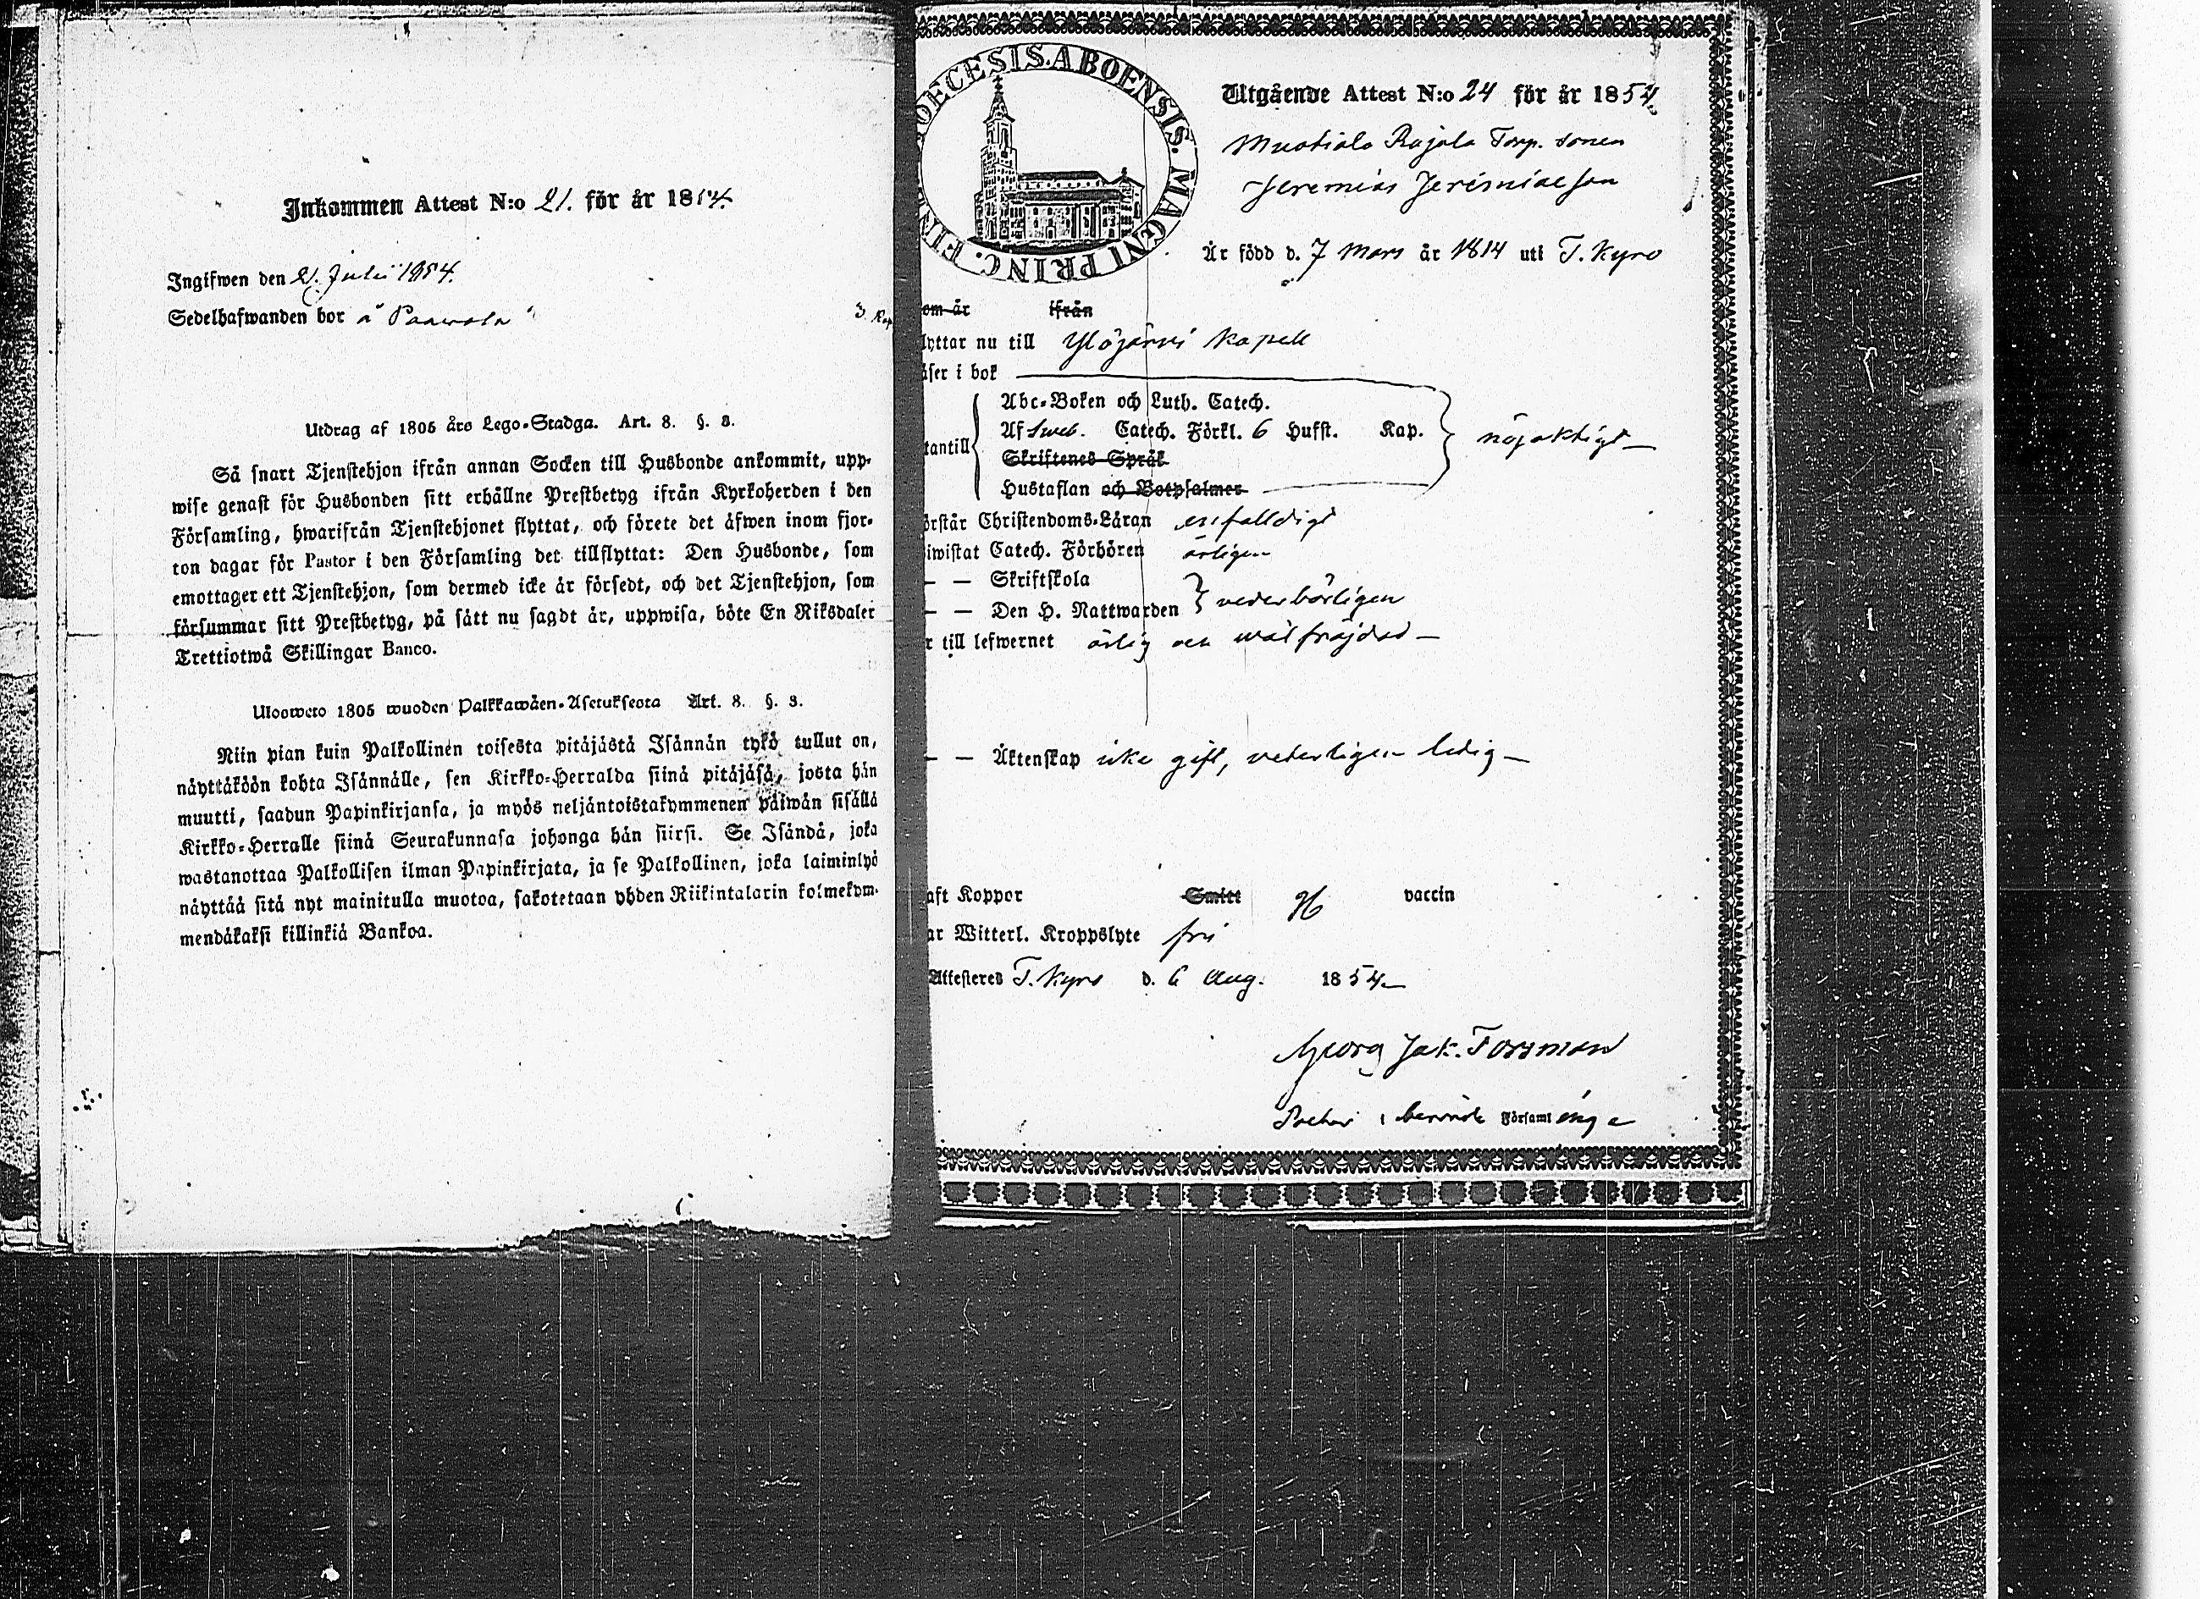 Inkommen Attest N:o 21. för år 1854.
Ingifwen den 21. Julii 1854.
Sedelhafwanden bor å Paawola
3 Kop
Utdrag af 1805 års Lego-Stadga. Art. 8. §. 3.
Så snart Tjenstehjon ifrån annan Socken till Husbonde ankommit, upp-
wise genast för Husbonden sitt erhållne Prestbetyg ifrån Kyrkoherden i den
Församling, hwarifrån Tjenstehjonet flyttat, och förete det äfwen inom fjor-
ton dagar för Pastor i den Församling det tillflyttat: Den Husbonde, som
emottager ett Tjenstehjon, som dermed icke är försedt, och det Tjenstehjon, som
försummar sitt Prestbetyg, på sätt nu sagdt är, uppwisa, böte En Riksdaler
Trettiotwå Skillingar Banco.
Uloswето 1805 wuoden Palkkawäen-Asetuksesta Art. 8. §. 3.
Niin pian kuin Palkollinen toisesta pitäjästä Isännän tykö tullut on,
näyttäköön kohta Isännälle, sen Kirkko-Herralda siinä pitäjäsä, josta hän
muutti, saadun Papinkirjansa, ja myös neljäntoistakymmenen päiwän sisällä
Kirkko-Herralle siinä Seurakunnasa johonga hän siirsi. Se Isändä, joka
wastanottaa Palkollisen ilman Papinkirjata, ja se Palkollinen, joka laiminlyö
näyttää sitä nyt mainitulla muotoa, sakotetaan yhden Riikintalarin kolmekym-
mendäkaksi killinkiä Bankoa.
OECESIS. ABOENSIS. MAGNI PRINC. FIN
Utgående Attest N:o 24 för år 1854.
Muotiala Rajala Torp. sonen
Jeremias Jeremiaesson
Är född d. 7 Mars år 1814 uti T. Kyro
om år ifrån
lyttar nu till Ylöjärvi Kapell
äser i bok
Abc-Boken och Luth. Catech.
tantill Af Sweb. Catech. Förkl. 6 Hufst. Kap. nöjaktigt
Skriftenes Språk
Hustaflan och Botpsalmer
örstår Christendoms-Läran enfalldigt
iwistat Catech. Förhören årligen
— — Skriftskola
— — Den H. Nattwarden vederbörligen
r till lefwernet ärlig och wälfräjdad
— — Äktenskap icke gift, vederligen ledig
aft Koppor Smitt vaccin
ar Witterl. Kroppslyte fri
Attesteras T. Kyro d. 6 Aug. 1854
Georg Jak. Forsman
Pastor i berörde Församling